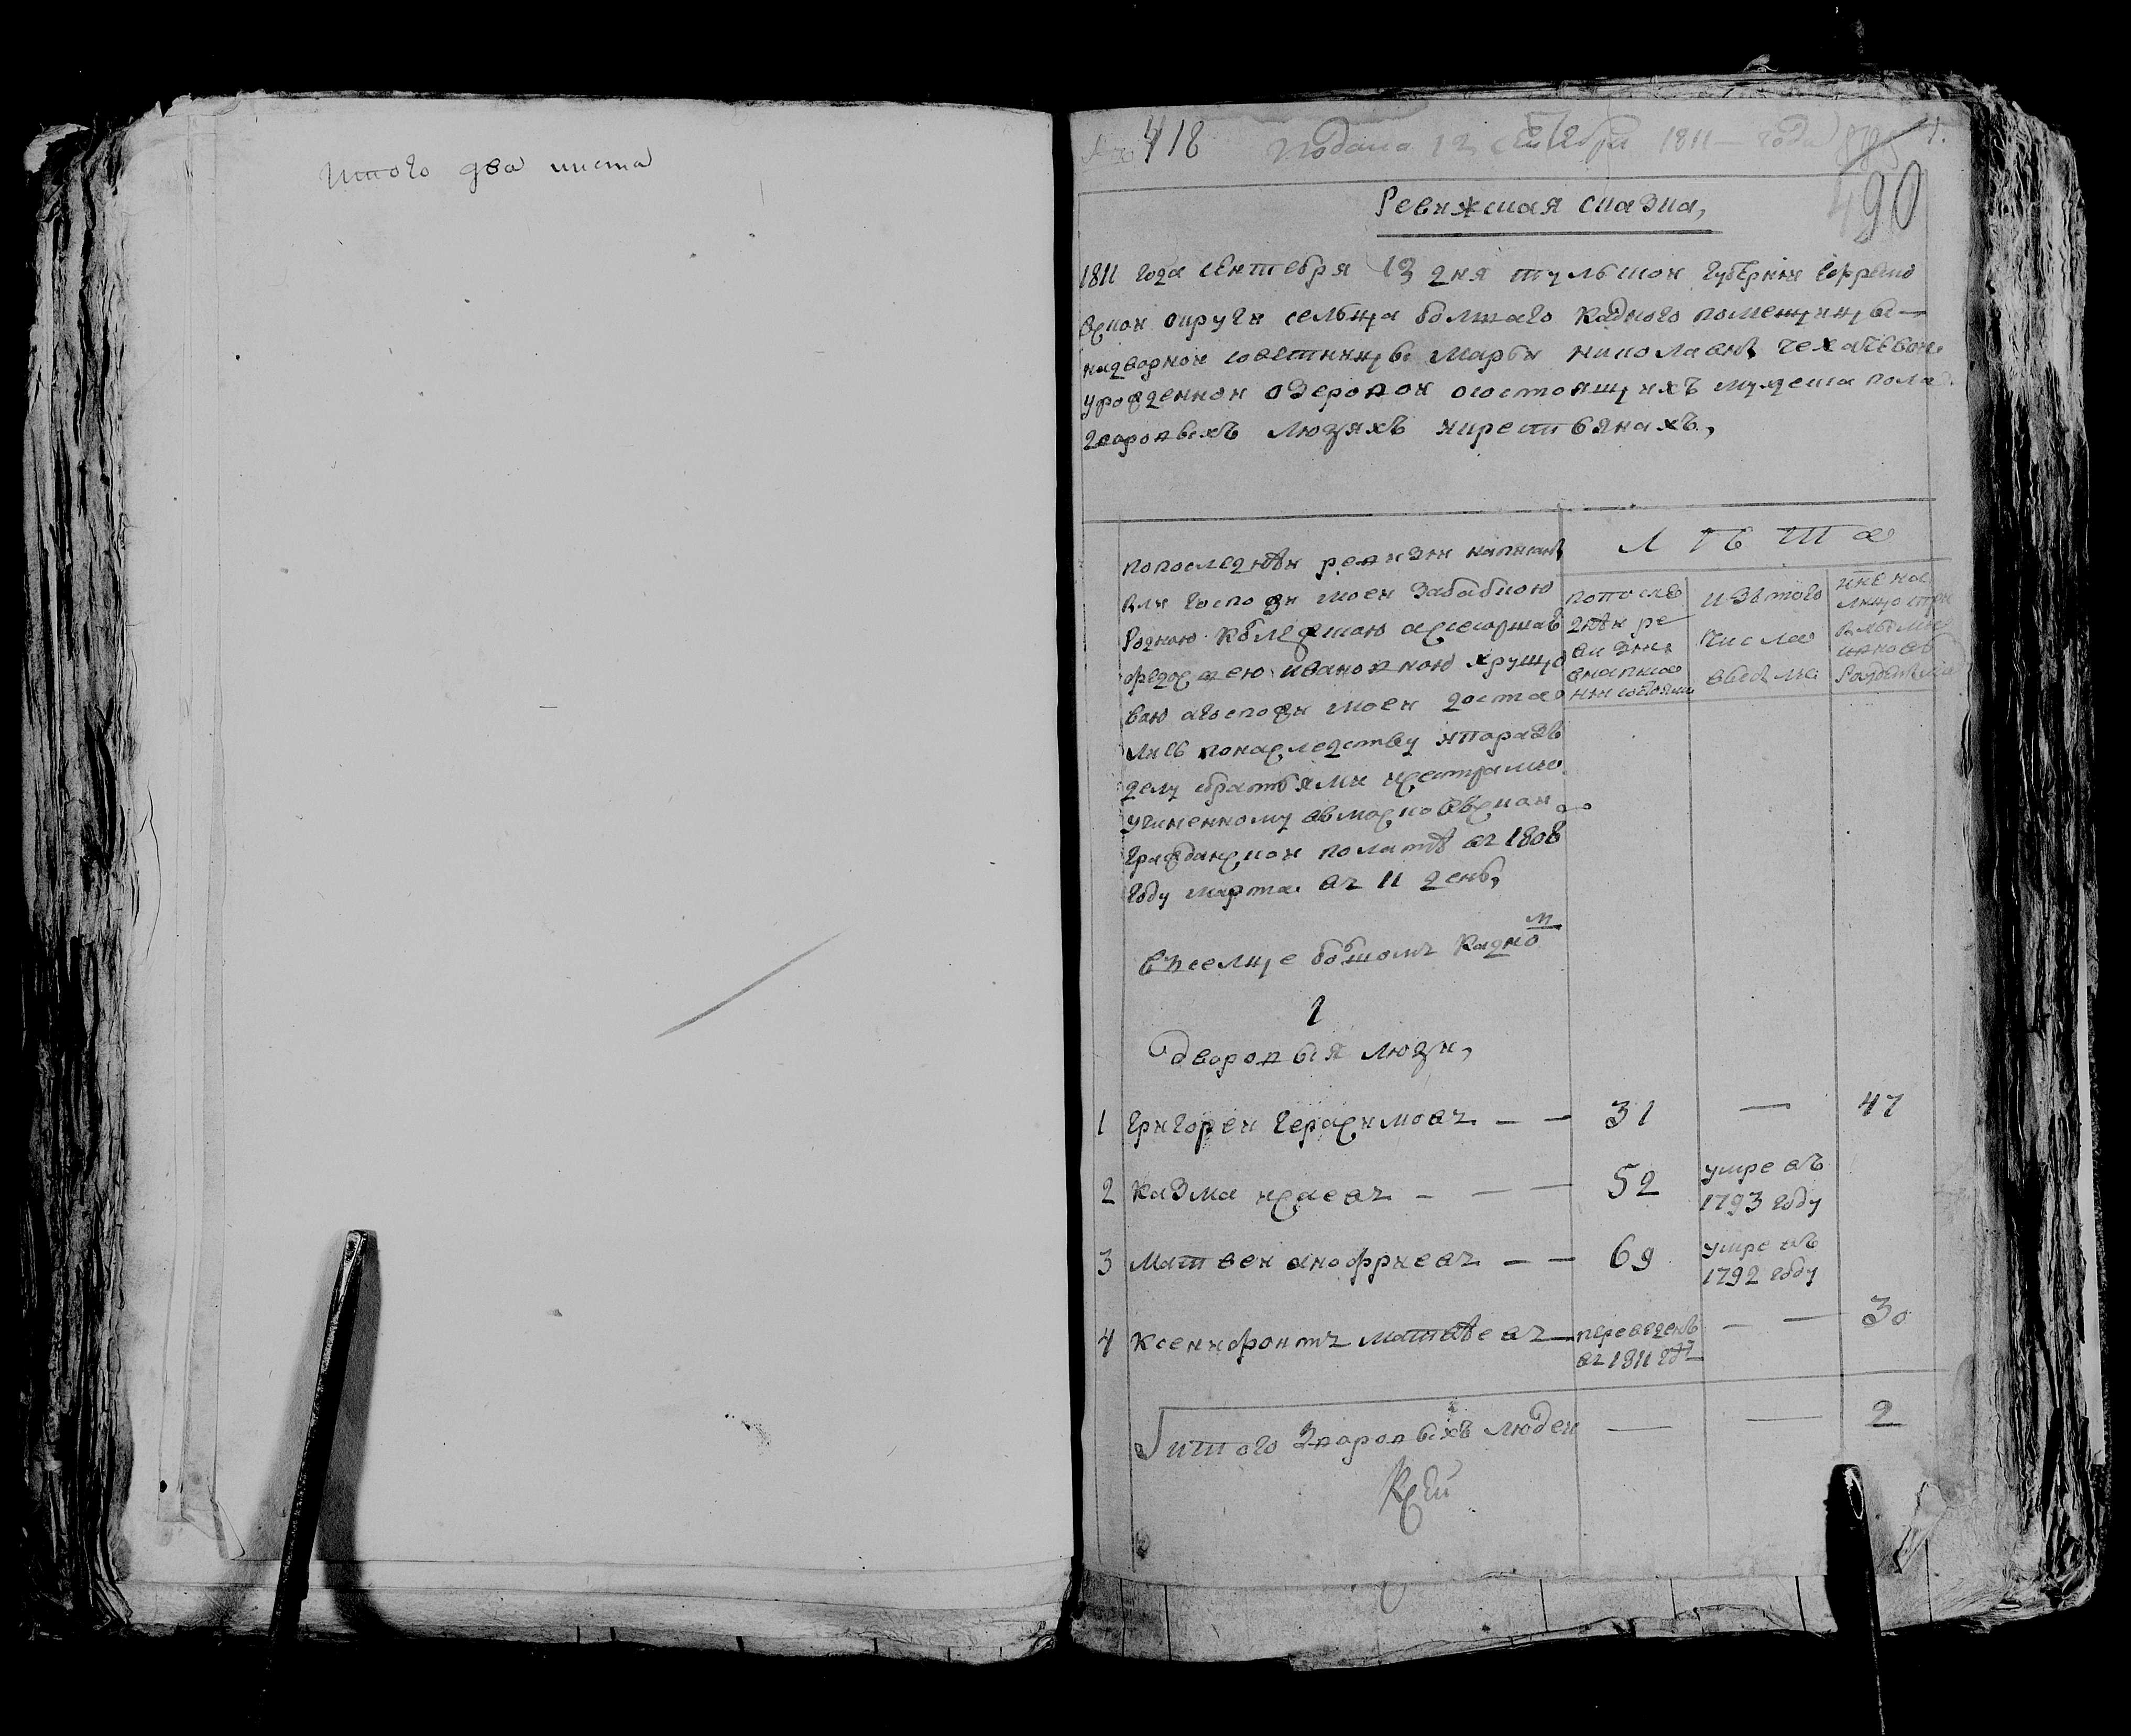 итого два листа
№ 418 Подана 12 сентебря 1811 года
490
Ревижская сказка,
1811 года сентебря 12 дня тульской губернии Ефремо
вской округи сельца болшаго Кадного помещицы
надворной советницы марьи николаевны чехачевой
урожденной озеровой осостоящихъ мужеска пола
дворовыхъ людяхъ икрестьянахъ,
попоследнѣй ревизии написаны
были госпожи моей забабкою
родною колежскою асесоршею
федосьею ивановною хрущо
вою агоспоже моей доста
лись понаследству ипораздѣ
делу збратьями исестрами
учиненному вмосковской
гражданской полатѣ въ 1808
году марта въ 11 день,
Лѣта
попосле
днѣй ре
визии
написа
ны
изтого
числа
выбыло
ныне на
лицо
Всельце болшомъ Кадном
1
дворовыя люди,
1 григорей герасимовъ — — 31 — 47
2 Казма исаевъ — — — 52 умре въ
1793 году
3 Матвей анофриевъ — — 69 умре въ
1792 году
4 Ксенифонтъ матвѣевъ — переведенъ — — 30
въ 1811 году
итого дворовыхъ людей — — 2